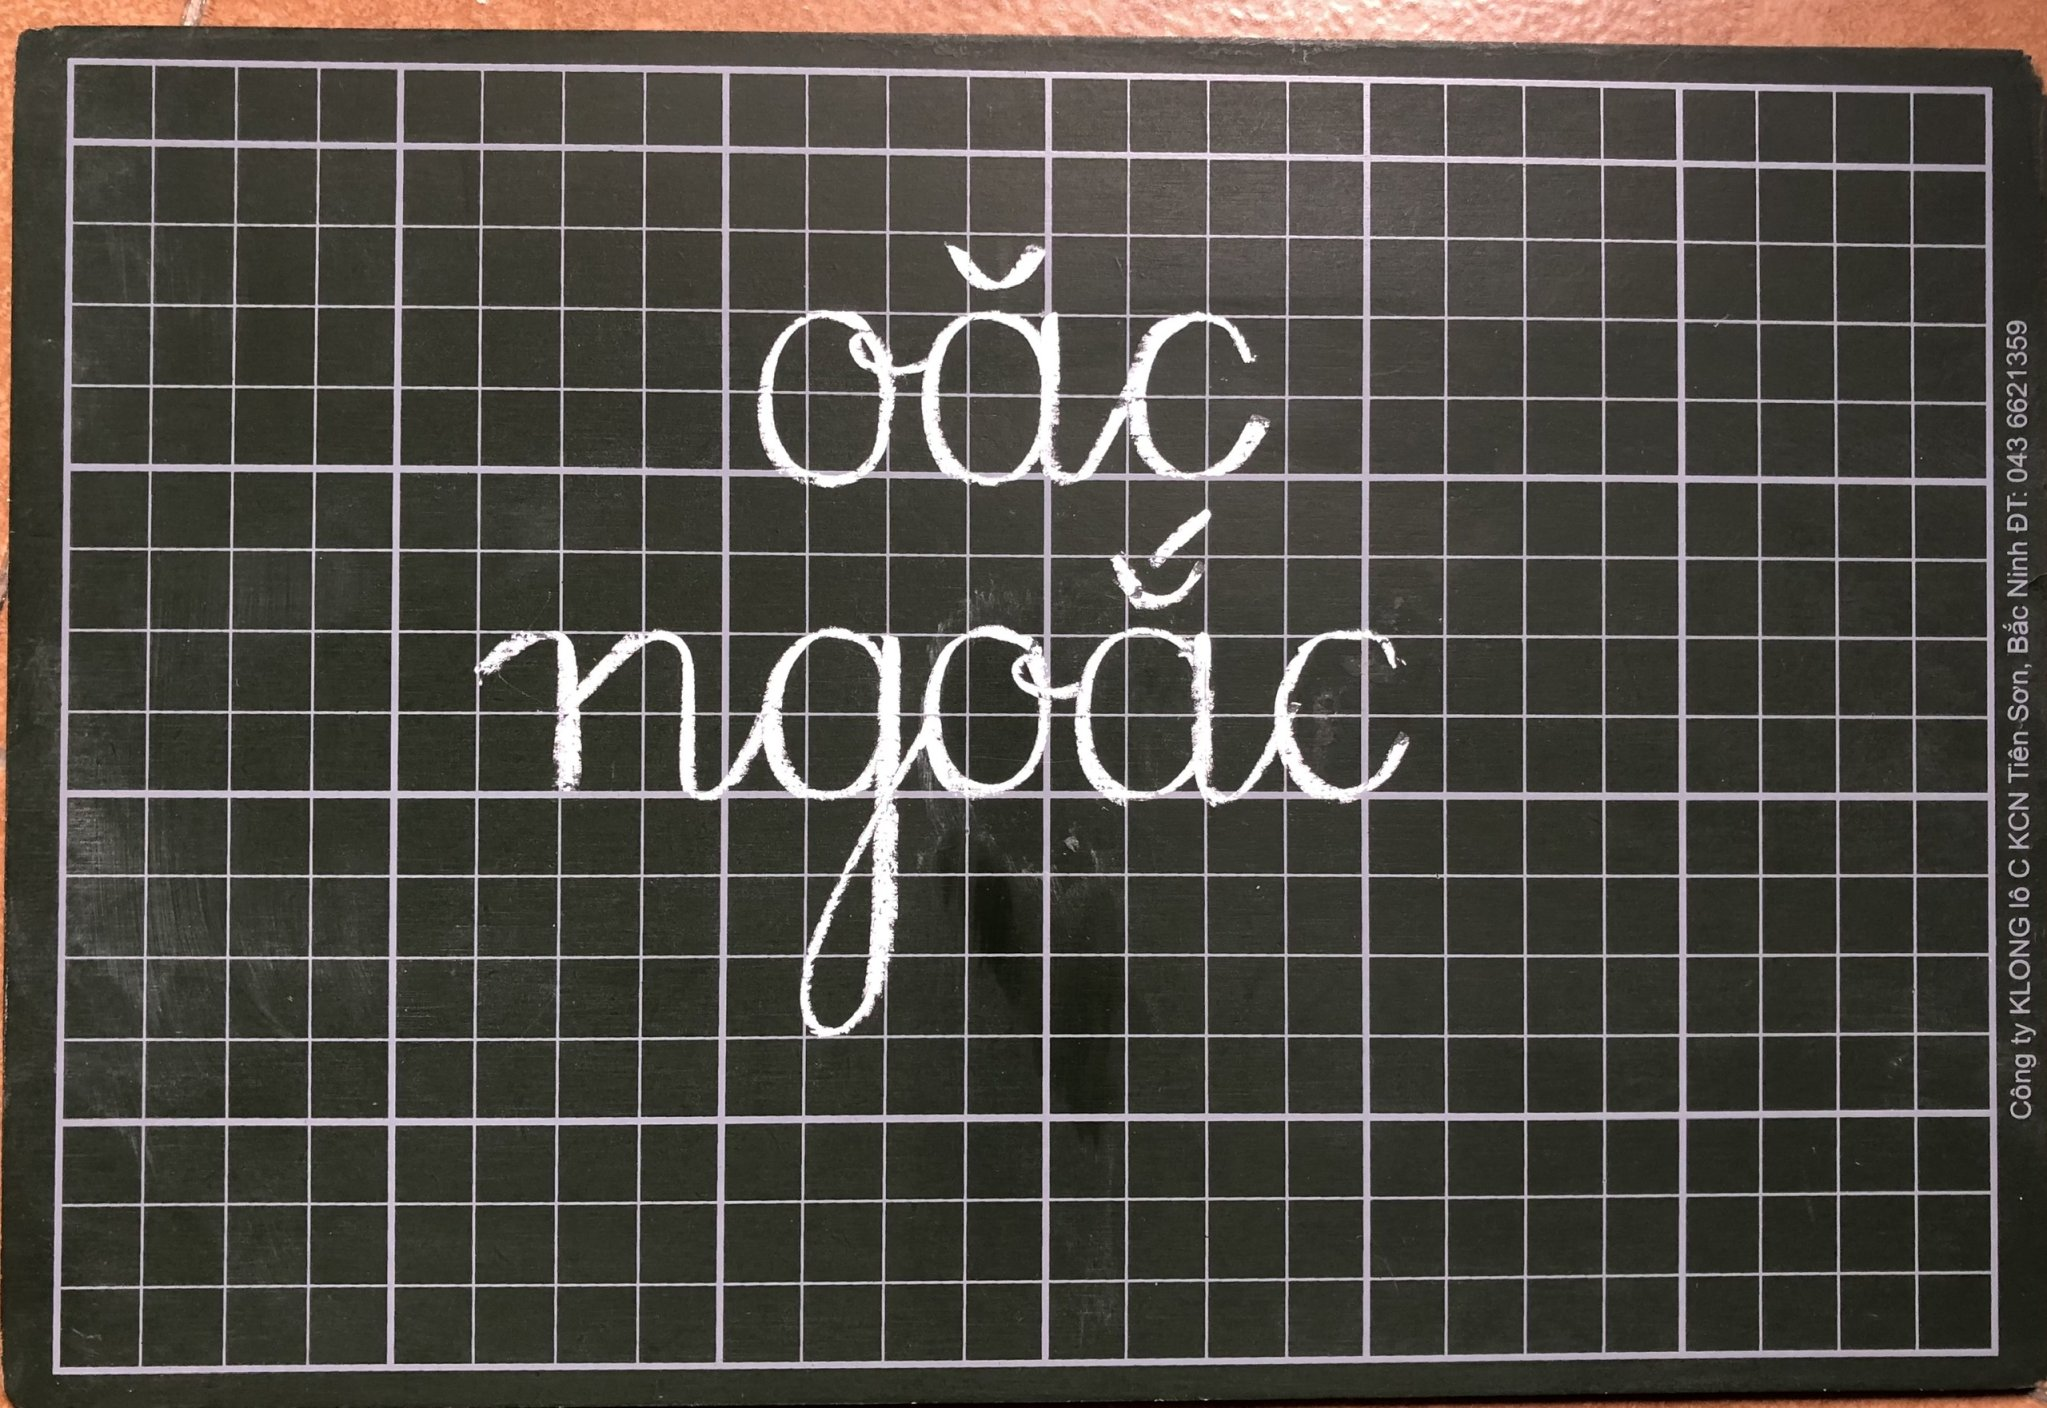 oăc
ngoắc
Công ty KLONG lô C KCN Tiên Sơn, Bắc Ninh ĐT: 043 6621359